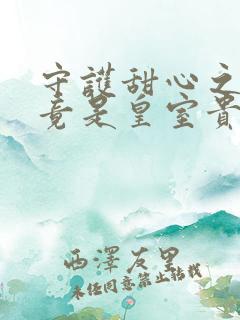 守護甜心之
竟是皇室貴
西澤友里
未經同意禁止轉載